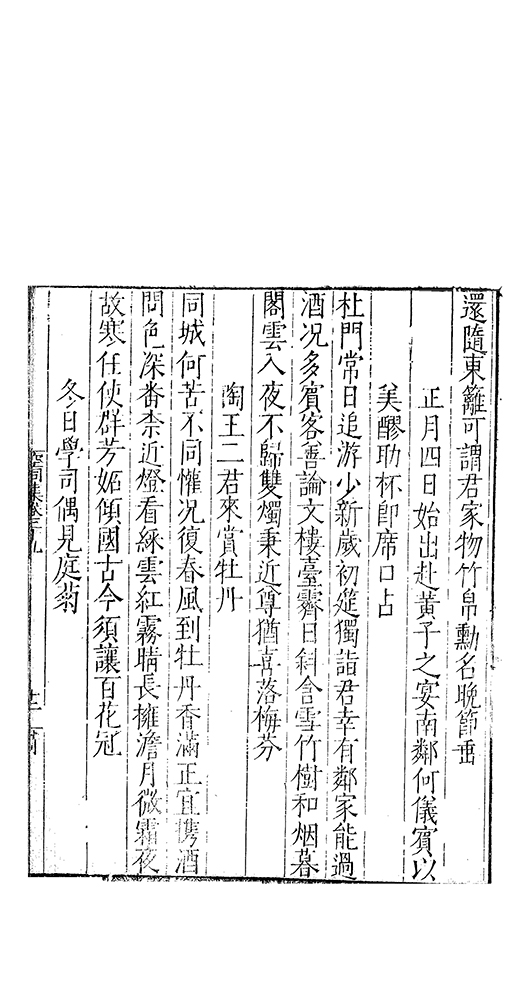 還隨東籬可謂君家物竹帛勳名晚節垂
正月四日始出赴黃子之宴南鄰何儀賓以
美醪助杯卽席口占
杜門常日追游少新歲初筵獨詣君幸有鄰家能過
酒况多賓客善論文樓臺霽日斜含雪竹樹和烟暮
閣雲入夜不歸雙燭秉近尊猶喜落梅芬
陶王二君來賞牡丹
同城何苦不同懽况復春風到牡丹香滿正宜携酒
問色深畨柰近燈看綵雲紅霧晴長擁澹月微霜夜
故寒任使群芳姬傾國古今須讓百花冠
冬日學司偶見庭菊
空同集卷三十九